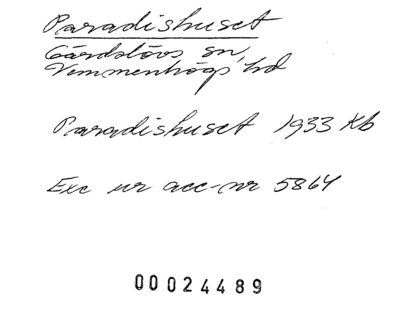 Paradishuset
Gärdslövs sn,
Vemmenhögs hd
Paradishuset 1933 Kb
Exc ur acc-nr 5864
00024489